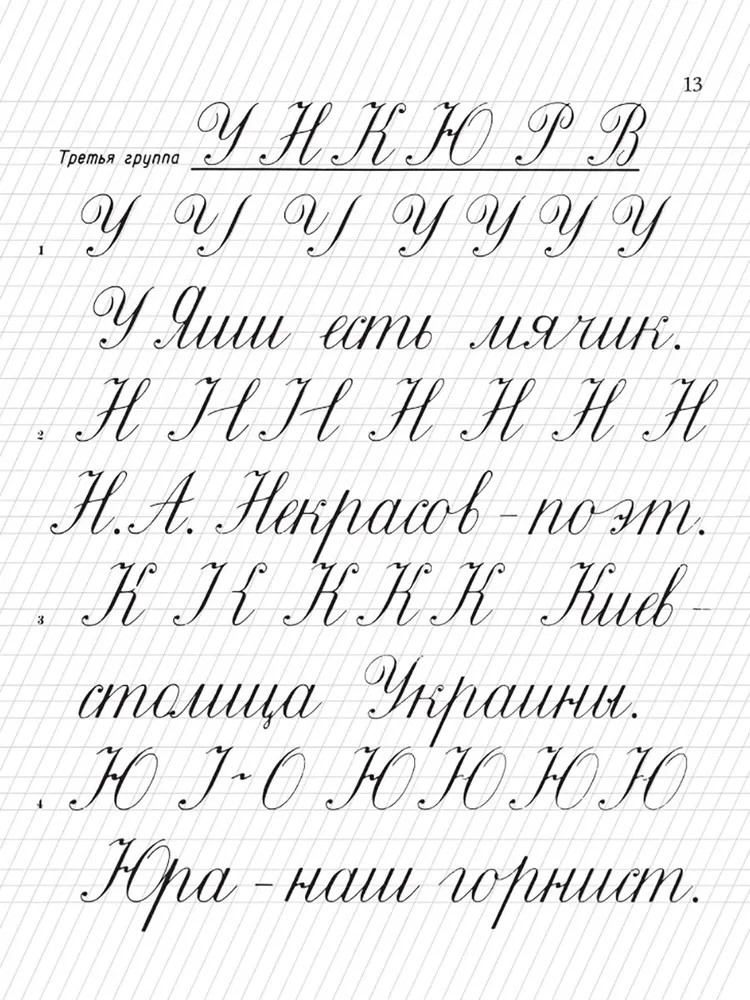 13
Третья группа У Н К Ю Р В
1 У У У У У У У
У Яши есть мячик.
2 Н Н Н Н Н Н Н
Н.А. Некрасов – поэт.
3 К К К К К Киев –
столица Украины.
4 Ю І ~ О Ю Ю Ю Ю
Юра – наш горнист.